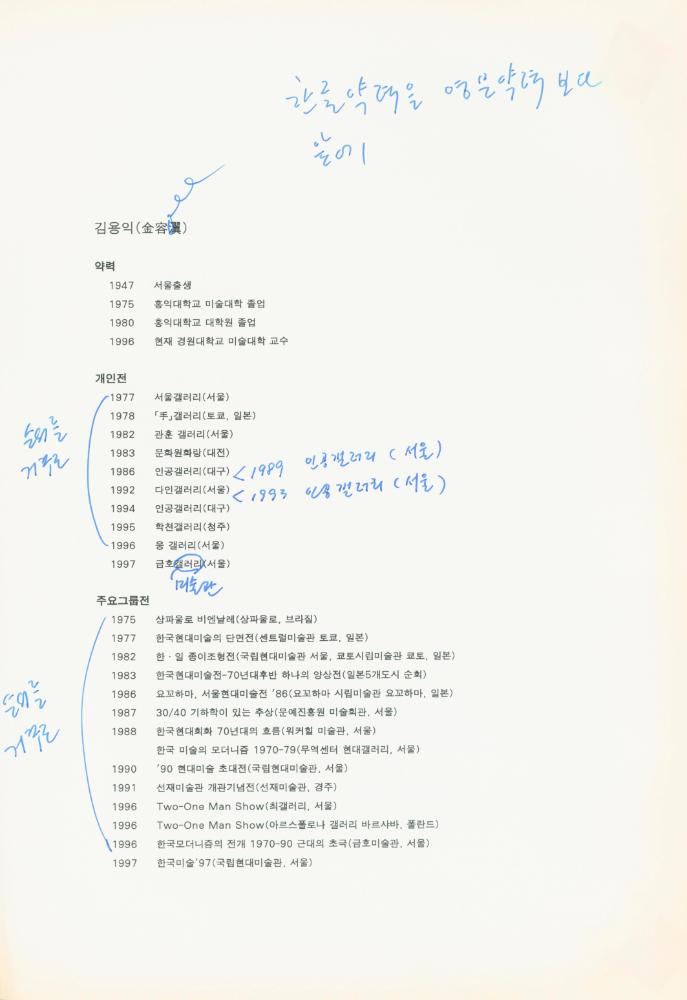 한글약력을 영문약력 보다
앞에
김용익(金容翼)
약력
1947 서울출생
1975 홍익대학교 미술대학 졸업
1980 홍익대학교 대학원 졸업
1996 현재 경원대학교 미술대학 교수
개인전
1977 서울갤러리(서울)
1978 「手」갤러리(토쿄, 일본)
1982 관훈 갤러리(서울)
순서를
거꾸로
1983 문화원화랑(대전)
1986 인공갤러리(대구) < 1989 인공갤러리 (서울)
1992 다인갤러리(서울) < 1993 인공갤러리 (서울)
1994 인공갤러리(대구)
1995 학천갤러리(청주)
1996 웅 갤러리(서울)
1997 금호갤러리(서울)
미술관
주요그룹전
1975 상파울로 비엔날레(상파울로, 브라질)
1977 한국현대미술의 단면전(센트럴미술관 토쿄, 일본)
1982 한·일 종이조형전(국립현대미술관 서울, 쿄토시립미술관 쿄토, 일본)
1983 한국현대미술전-70년대후반 하나의 양상전(일본5개도시 순회)
순서를
거꾸로
1986 요꼬하마, 서울현대미술전 '86(요꼬하마 시립미술관 요꼬하마, 일본)
1987 30/40 기하학이 있는 추상(문예진흥원 미술회관, 서울)
1988 한국현대회화 70년대의 흐름(워커힐 미술관, 서울)
한국 미술의 모더니즘 1970-79(무역센터 현대갤러리, 서울)
1990 '90 현대미술 초대전(국립현대미술관, 서울)
1991 선재미술관 개관기념전(선재미술관, 경주)
1996 Two-One Man Show(최갤러리, 서울)
1996 Two-One Man Show(아르스폴로나 갤러리 바르샤바, 폴란드)
1996 한국모더니즘의 전개 1970-90 근대의 초극(금호미술관, 서울)
1997 한국미술'97(국립현대미술관, 서울)